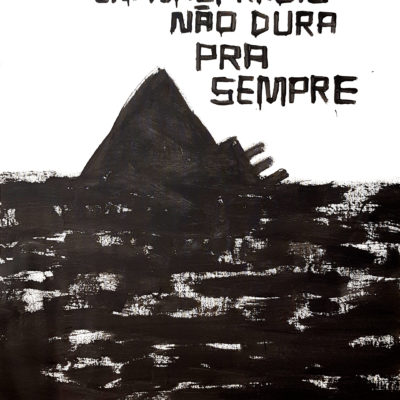 NÃO DURA
PRA
SEMPRE